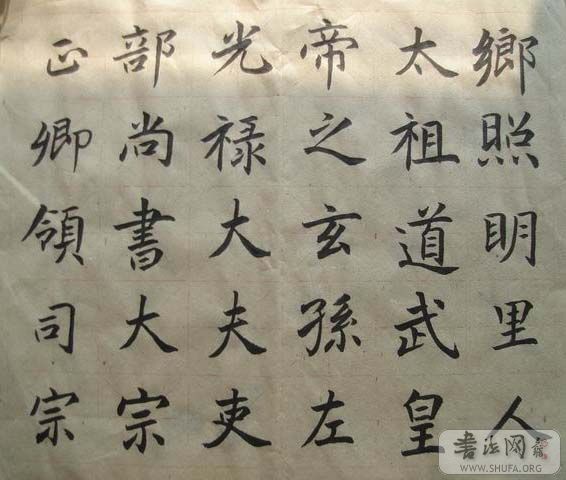 鄉照明里人
太祖道武皇
帝之玄孫左
光祿大夫吏
部尚書大宗
正卿領司宗
書法网
WWW.SHUFA.ORG